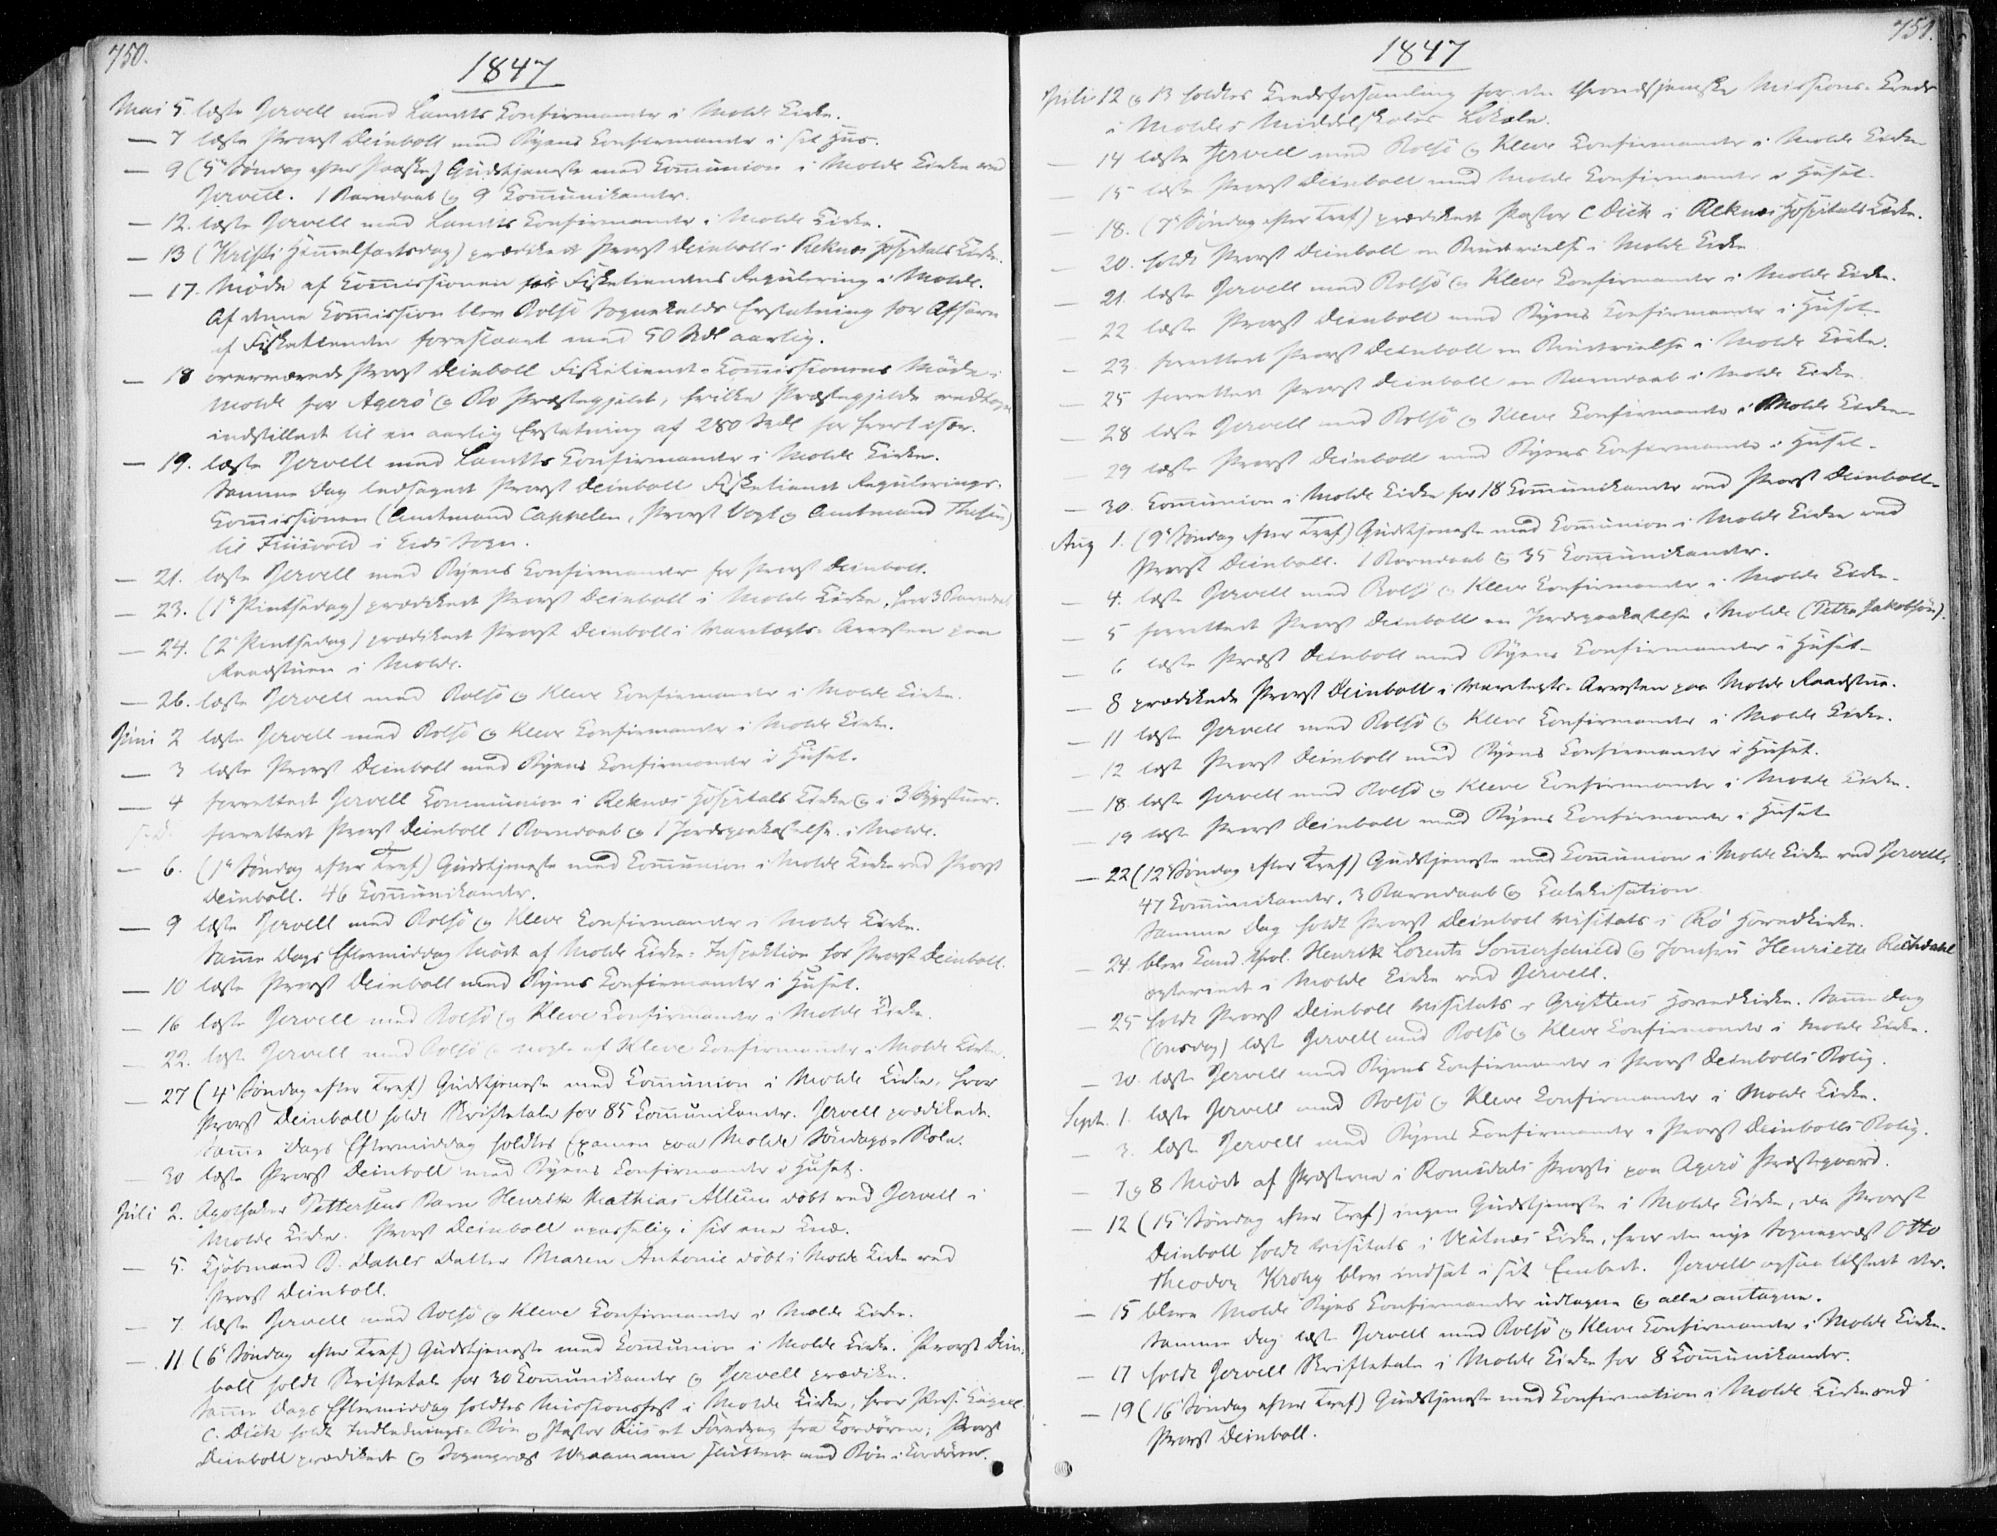 750.
1847
Mai 5. læste Jervell med Landets Confirmander i Molde Kirke.
— 7 læste Provst Deinboll med Byens Confirmander i sit Huus.
— 9 (5te Søndag efter Paaske) Gudstjeneste med Communion i Molde Kirke ved
Jervell. 1 Barnedaab og 9 Communikanter.
— 12. læste Jervell med Landets Confirmander i Molde Kirke.
— 13 (Kristi Himmelfartsdag) prædikede Provst Deinboll i Reknæs Hospitals Kirke.
— 17. Møde af Commissionen for Fisketiendens Regulering i Molde.
Af denne Commission blev Bolsö Sognekalds Erstatning for Afsavn
af Fisketienden foreslaaet med 50 Spdl aarlig.
— 18 overværede Provst Deinboll Fisketiende-Commissionens Møde i
Molde for Agerö og Bo Præstegjeld, hvilke Præstegjelde
indstilledes til en aarlig Erstatning af 280 Spdl for hvert især.
— 19. læste Jervell med Landets Confirmander i Molde Kirke.
Samme Dag ledsagede Provst Deinboll Fisketiende Regulerings-
Commissionen (Amtmand Cappelen, Provst Vogt og Amtmand Thesen)
til Friisvold i Eids Sogn.
— 21. læste Jervell med Byens Confirmander for Provst Deinboll.
— 23. (1ste Pintsedag) prædikede Provst Deinboll i Molde Kirke, hvor 3 Barnedaab
— 24. (2den Pintsedag) prædikede Provst Deinboll i Varetægts-Arresten paa
Raadstuen i Molde.
— 26. læste Jervell med Bolsö og Kleve Confirmander i Molde Kirke.
Juni 2 læste Jervell med Bolsö og Kleve Confirmander i Molde Kirke.
— 3 læste Provst Deinboll med Byens Confirmander i Huset.
— 4 forrettede Jervell Communion i Reknæs Hospitals Kirke og i 3 Sygestuer.
forrettede Provst Deinboll 1 Barnedaab og 1 Jordspaakastelse i Molde.
— 6. (1ste Søndag efter Tref) Gudstjeneste med Communion i Molde Kirke ved Provst
Deinboll. 46 Communikanter.
— 9 læste Jervell med Bolsö og Kleve Confirmander i Molde Kirke.
Samme Dags Eftermiddag Møde af Molde Kirke-Inspektion hos Provst Deinboll.
— 10 læste Provst Deinboll med Byens Confirmander i Huset.
— 16 læste Jervell med Bolsö og Kleve Confirmander i Molde Kirke.
— 22. læste Jervell med Bolsö og nogle af Kleve Confirmander i Molde Kirke.
— 27 (4de Søndag efter Tref) Gudstjeneste med Communion i Molde Kirke, hvor
Provst Deinboll holdt Skriftetale for 85 Communikanter. Jervell prædikede.
Samme Dags Eftermiddag holdtes Examen paa Molde Søndags-Skole.
30 læste Provst Deinboll med Byens Confirmander i Huset.
Juli 2. Apotheker Pettersens Barn Henrik Mathias Allum döbt ved Jervell i
Molde Kirke. Provst Deinboll upasselig i sit ene Knæ.
— 5. Kjöbmand B. Dahls Datter Maren Antonie döbt i Molde Kirke ved
Provst Deinboll.
— 7 læste Jervell med Bolsö og Kleve Confirmander i Molde Kirke.
— 11 (6te Søndag efter Tref) Gudstjeneste med Communion i Molde Kirke. Provst Dein-
boll holdt Skriftetale for 30 Communikanter og Jervell prædiken.
Samme Dags Eftermiddag holdtes Missionsfest i Molde Kirke, hvor Pers. Capel.
C. Dick holdt Indlednings-Bön, Pastor Riis et Foredrag fra Kordören, Provst
Deinboll prædikede og Sognepræst Wraamann sluttede med Bön i Kordören.
751.
1847
Juli 12 og 13 holdtes Kredsforsamling for den throndhjemske Missions-Kreds
i Moldes Middelskoles Lokale.
— 14 læste Jervell med Bolsö og Kleve Confirmander i Molde Kirke
— 15 læste Provst Deinboll med Molde Confirmander i Huset.
— 18. (7de Søndag efter Tref) prædikede Pastor C. Dick i Reknæs Hospitals Kirke.
— 20. holdt Provst Deinboll en Brudevielse i Molde Kirke
— 21. læste Jervell med Bolsö og Kleve Confirmander i Molde Kirke.
— 22 læste Provst Deinboll med Byens Confirmander i Huset.
— 23. forrettede Provst Deinboll en Brudevielse i Molde Kirke.
— 25 forrettede Provst Deinboll en Barnedaab i Molde Kirke.
— 28 læste Jervell med Bolsö og Kleve Confirmander i Molde Kirke.
— 29 læste Provst Deinboll med Byens Confirmander i Huset.
— 30. Communion i Molde Kirke for 18 Communikanter ved Provst Deinboll.
Aug 1. (9de Søndag efter Tref) Gudstjeneste med Communion i Molde Kirke ved
Provst Deinboll. 1 Barnedaab og 35 Communikanter.
— 4. læste Jervell med Bolsö og Kleve Confirmander i Molde Kirke.
— 5 forrettede Provst Deinboll en Jordspaakastelse i Molde (Petra Jakobsön).
— 6 læste Provst Deinboll med Byens Confirmander i Huset.
— 8 prædikede Provst Deinboll i Varetægts-Arresten paa Molde Raadstue.
— 11 læste Jervell med Bolsö og Kleve Confirmander i Molde Kirke.
— 12 læste Provst Deinboll med Byens Confirmander i Huset.
— 18. læste Jervell med Bolsö og Kleve Confirmander i Molde Kirke.
— 19 læste Provst Deinboll med Byens Confirmander i Huset
— 22 (12te Søndag efter Tref) Gudstjeneste med Communion i Molde Kirke ved Jervell.
47 Communikanter, 3 Barnedaab og Catekisation
Samme Dag holdt Provst Deinboll Visitats i Bö Hovedkirke.
— 24. blev Cand. theol. Henrik Lorentz Somerschield og Jomfru Henriette Rechdahl
ægteviet i Molde Kirke ved Jervell.
— 25 holdt Provst Deinboll Visitats i Gryttens Hovedkirke. Samme Dag
(Onsdag) læste Jervell med Bolsö og Kleve Confirmander i Molde Kirke.
— læste Jervell med Byens Confirmander i Provst Deinbolls Bolig.
Sept. 1. læste Jervell med Bolsö og Kleve Confirmander i Molde Kirke.
— 3. læste Jervell med Byens Confirmander i Provst Deinbolls Bolig.
— 7 og 8 Møde af Præsterne i Romsdals Provsti paa Agerö Præstegaard.
— 12 (15de Søndag efter Tref) ingen Gudstjeneste i Molde Kirke, da Provst
Deinboll holdt Visitats i Uetnæs Kirke, hvor den nye Sognepræst Otto
Theodor Krohg blev indsat i sit Embede. Jervell ogsaa tilstede der.
— 15 bleve Molde Byes Confirmander udtagne og alle antagne.
Samme Dag læste Jervell med Bolsö og Kleve Confirmander i Molde Kirke.
— 17 holdt Jervell Skriftetale i Molde Kirke for 8 Communikanter.
— 19 (16de Søndag efter Tref) Gudstjeneste med Confirmation i Molde Kirke ved
Provst Deinboll.